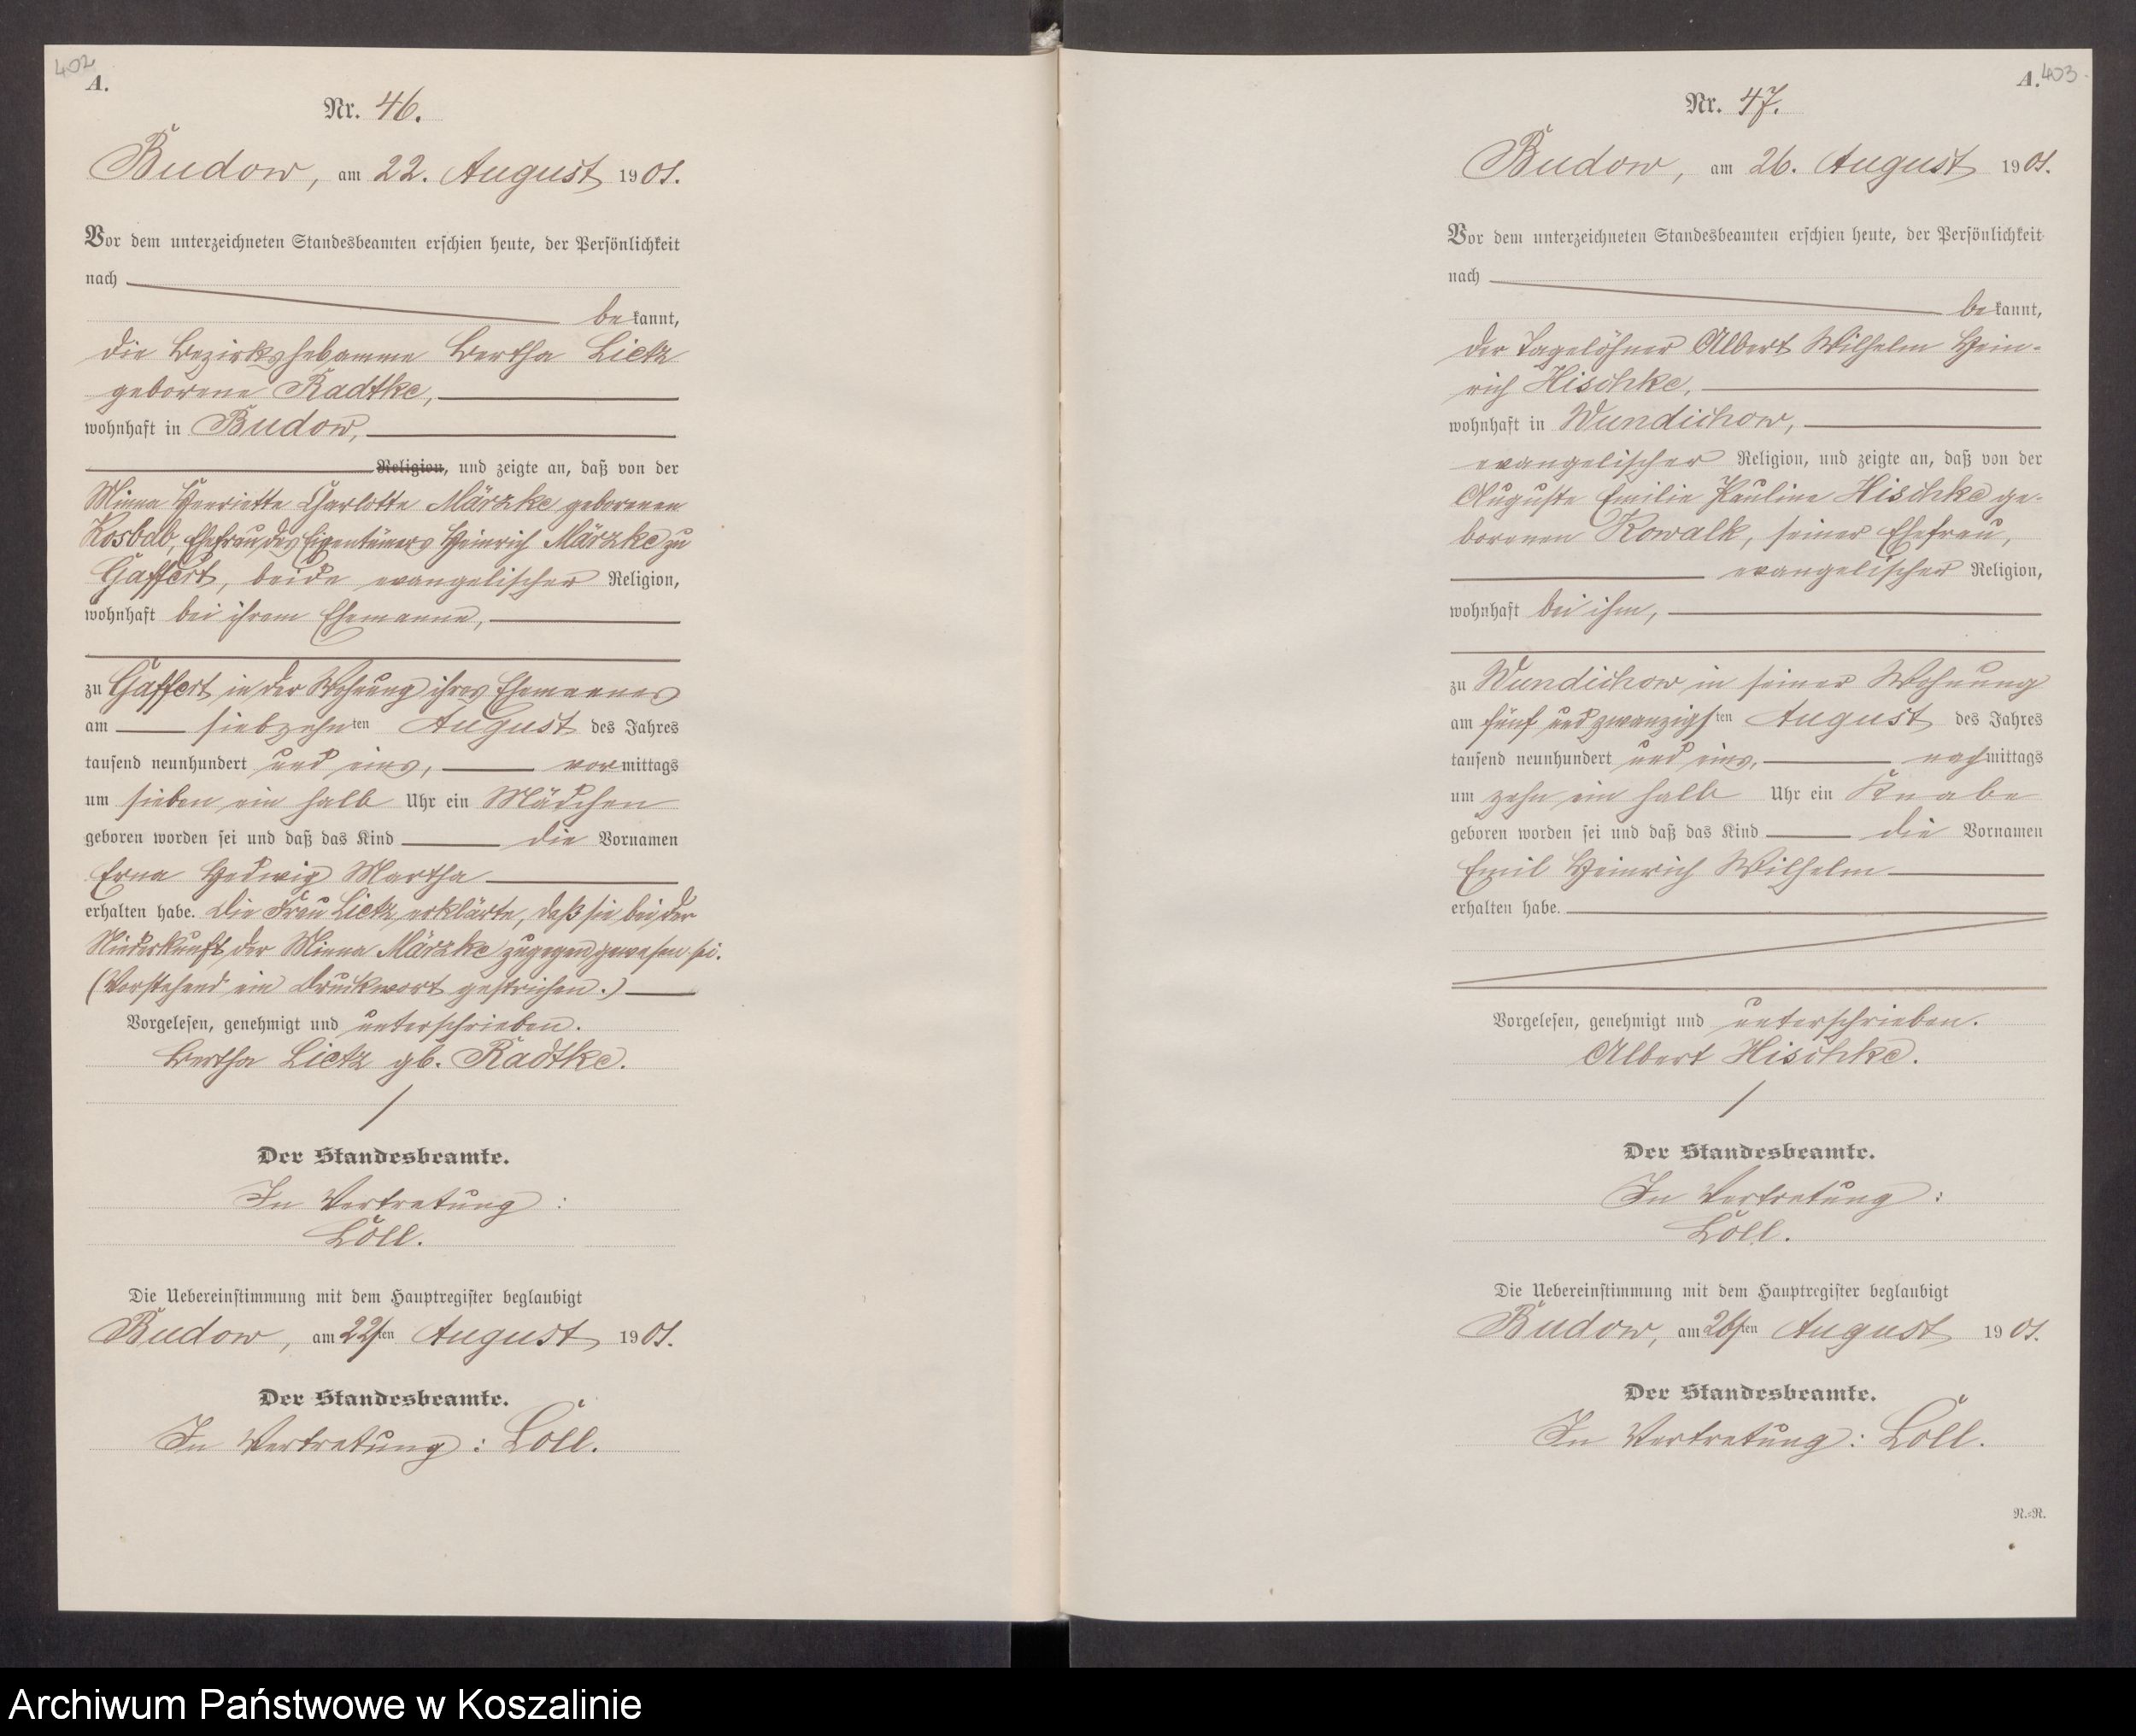 402
A.
Nr. 46.
Budow, am 22. August 1901.
Vor dem unterzeichneten Standesbeamten erschien heute, der Persönlichkeit
nach
bekannt,
die Bezirkshebamme Bertha Lietz
geborene Radtke,
wohnhaft in Budow,
Religion, und zeigte an, daß von der
Minna Henriette Charlotte Märzke geborenen
Kosbab, Ehefrau des Eigentümers Heinrich Märzke zu
Gaffert, beide evangelischer Religion,
wohnhaft bei ihrem Ehemanne,
zu Gaffert in der Wohnung ihres Ehemannes
am siebzehnten August des Jahres
tausend neunhundert und eins, vormittags
um sieben ein halb Uhr ein Mädchen
geboren worden sei und daß das Kind die Vornamen
Erna Hedwig Martha
erhalten habe. Die Frau Lietz erklärte, daß sie bei der
Niederkunft der Minna Märzke zugegen gewesen sei.
(Vorstehend ein Druckwort gestrichen.)
Vorgelesen, genehmigt und unterschrieben.
Bertha Lietz gb. Radtke.
Der Standesbeamte.
In Vertretung:
Löll.
Die Uebereinstimmung mit dem Hauptregister beglaubigt
Budow, am 22ten August 1901.
Der Standesbeamte.
In Vertretung: Löll.
A. 403
Nr. 47.
Budow, am 26. August 1901.
Vor dem unterzeichneten Standesbeamten erschien heute, der Persönlichkeit
nach
bekannt,
der Tagelöhner Albert Wilhelm Hein-
rich Hischke,
wohnhaft in Wundichow,
evangelischer Religion, und zeigte an, daß von der
Auguste Emilie Pauline Hischke ge-
borenen Kowalk, seiner Ehefrau,
evangelischer Religion,
wohnhaft bei ihm,
zu Wundichow in seiner Wohnung
am fünf und zwanzigsten August des Jahres
tausend neunhundert und eins, nachmittags
um zehn ein halb Uhr ein Knabe
geboren worden sei und daß das Kind die Vornamen
Emil Heinrich Wilhelm
erhalten habe.
Vorgelesen, genehmigt und unterschrieben.
Albert Hischke.
Der Standesbeamte.
In Vertretung:
Löll.
Die Uebereinstimmung mit dem Hauptregister beglaubigt
Budow, am 26ten August 1901.
Der Standesbeamte.
In Vertretung: Löll.
N.-R.
Archiwum Państwowe w Koszalinie